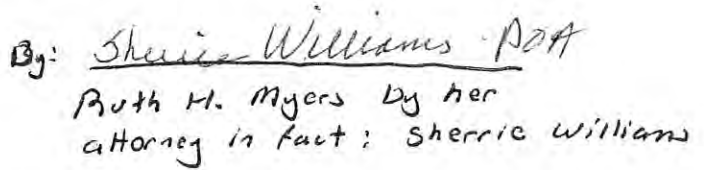 By: Sherrie Williams POA
Ruth H. Myers by her
attorney in fact: Sherrie Williams